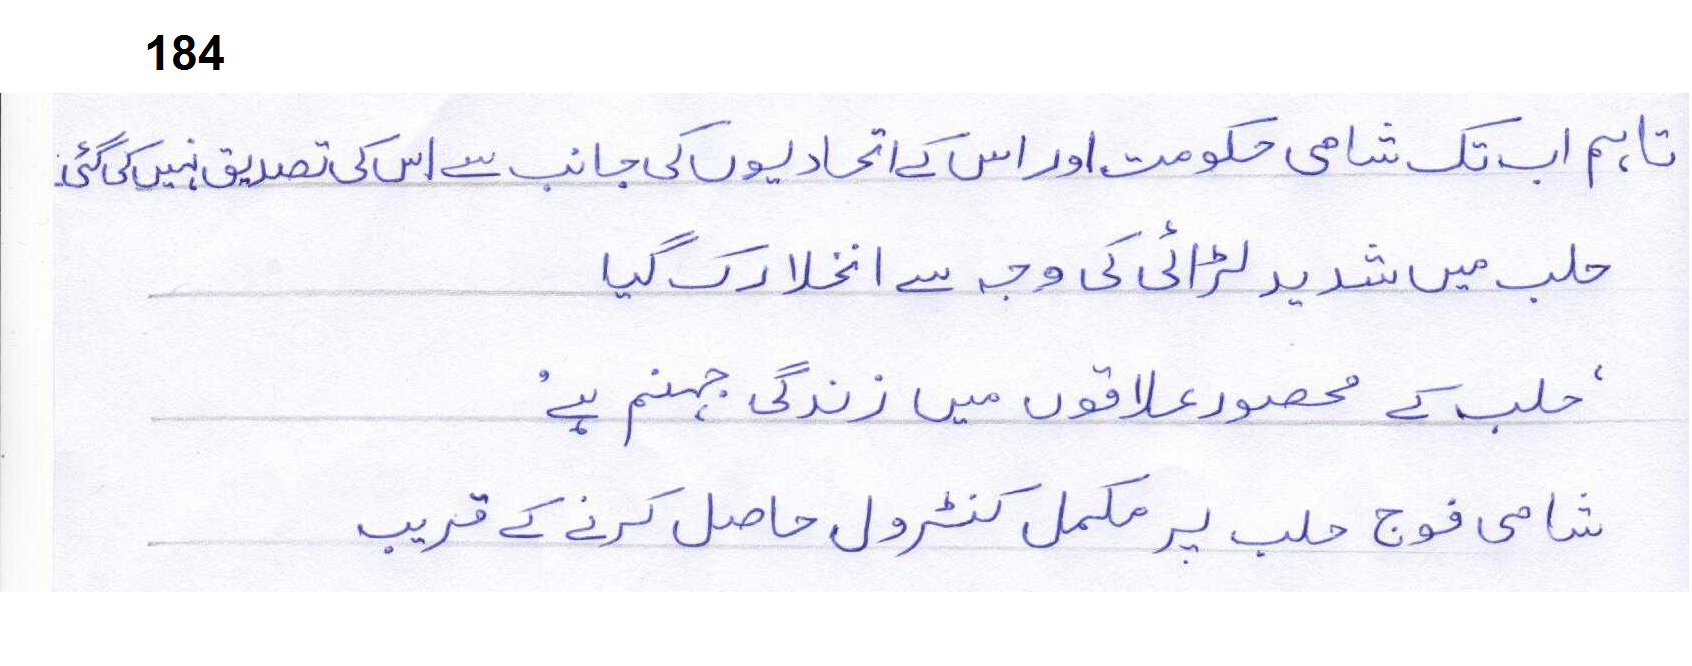 184
تاہم اب تک شامی حکومت اور اس کے اتحادیوں کی جانب سے اس کی تصدیق نہیں کی گئی۔
حلب میں شدید لڑائی کی وجہ سے انخلا رک گیا
’حلب کے محصور علاقوں میں زندگی جہنم ہے‘
شامی فوج حلب پر مکمل کنٹرول حاصل کرنے کے قریب